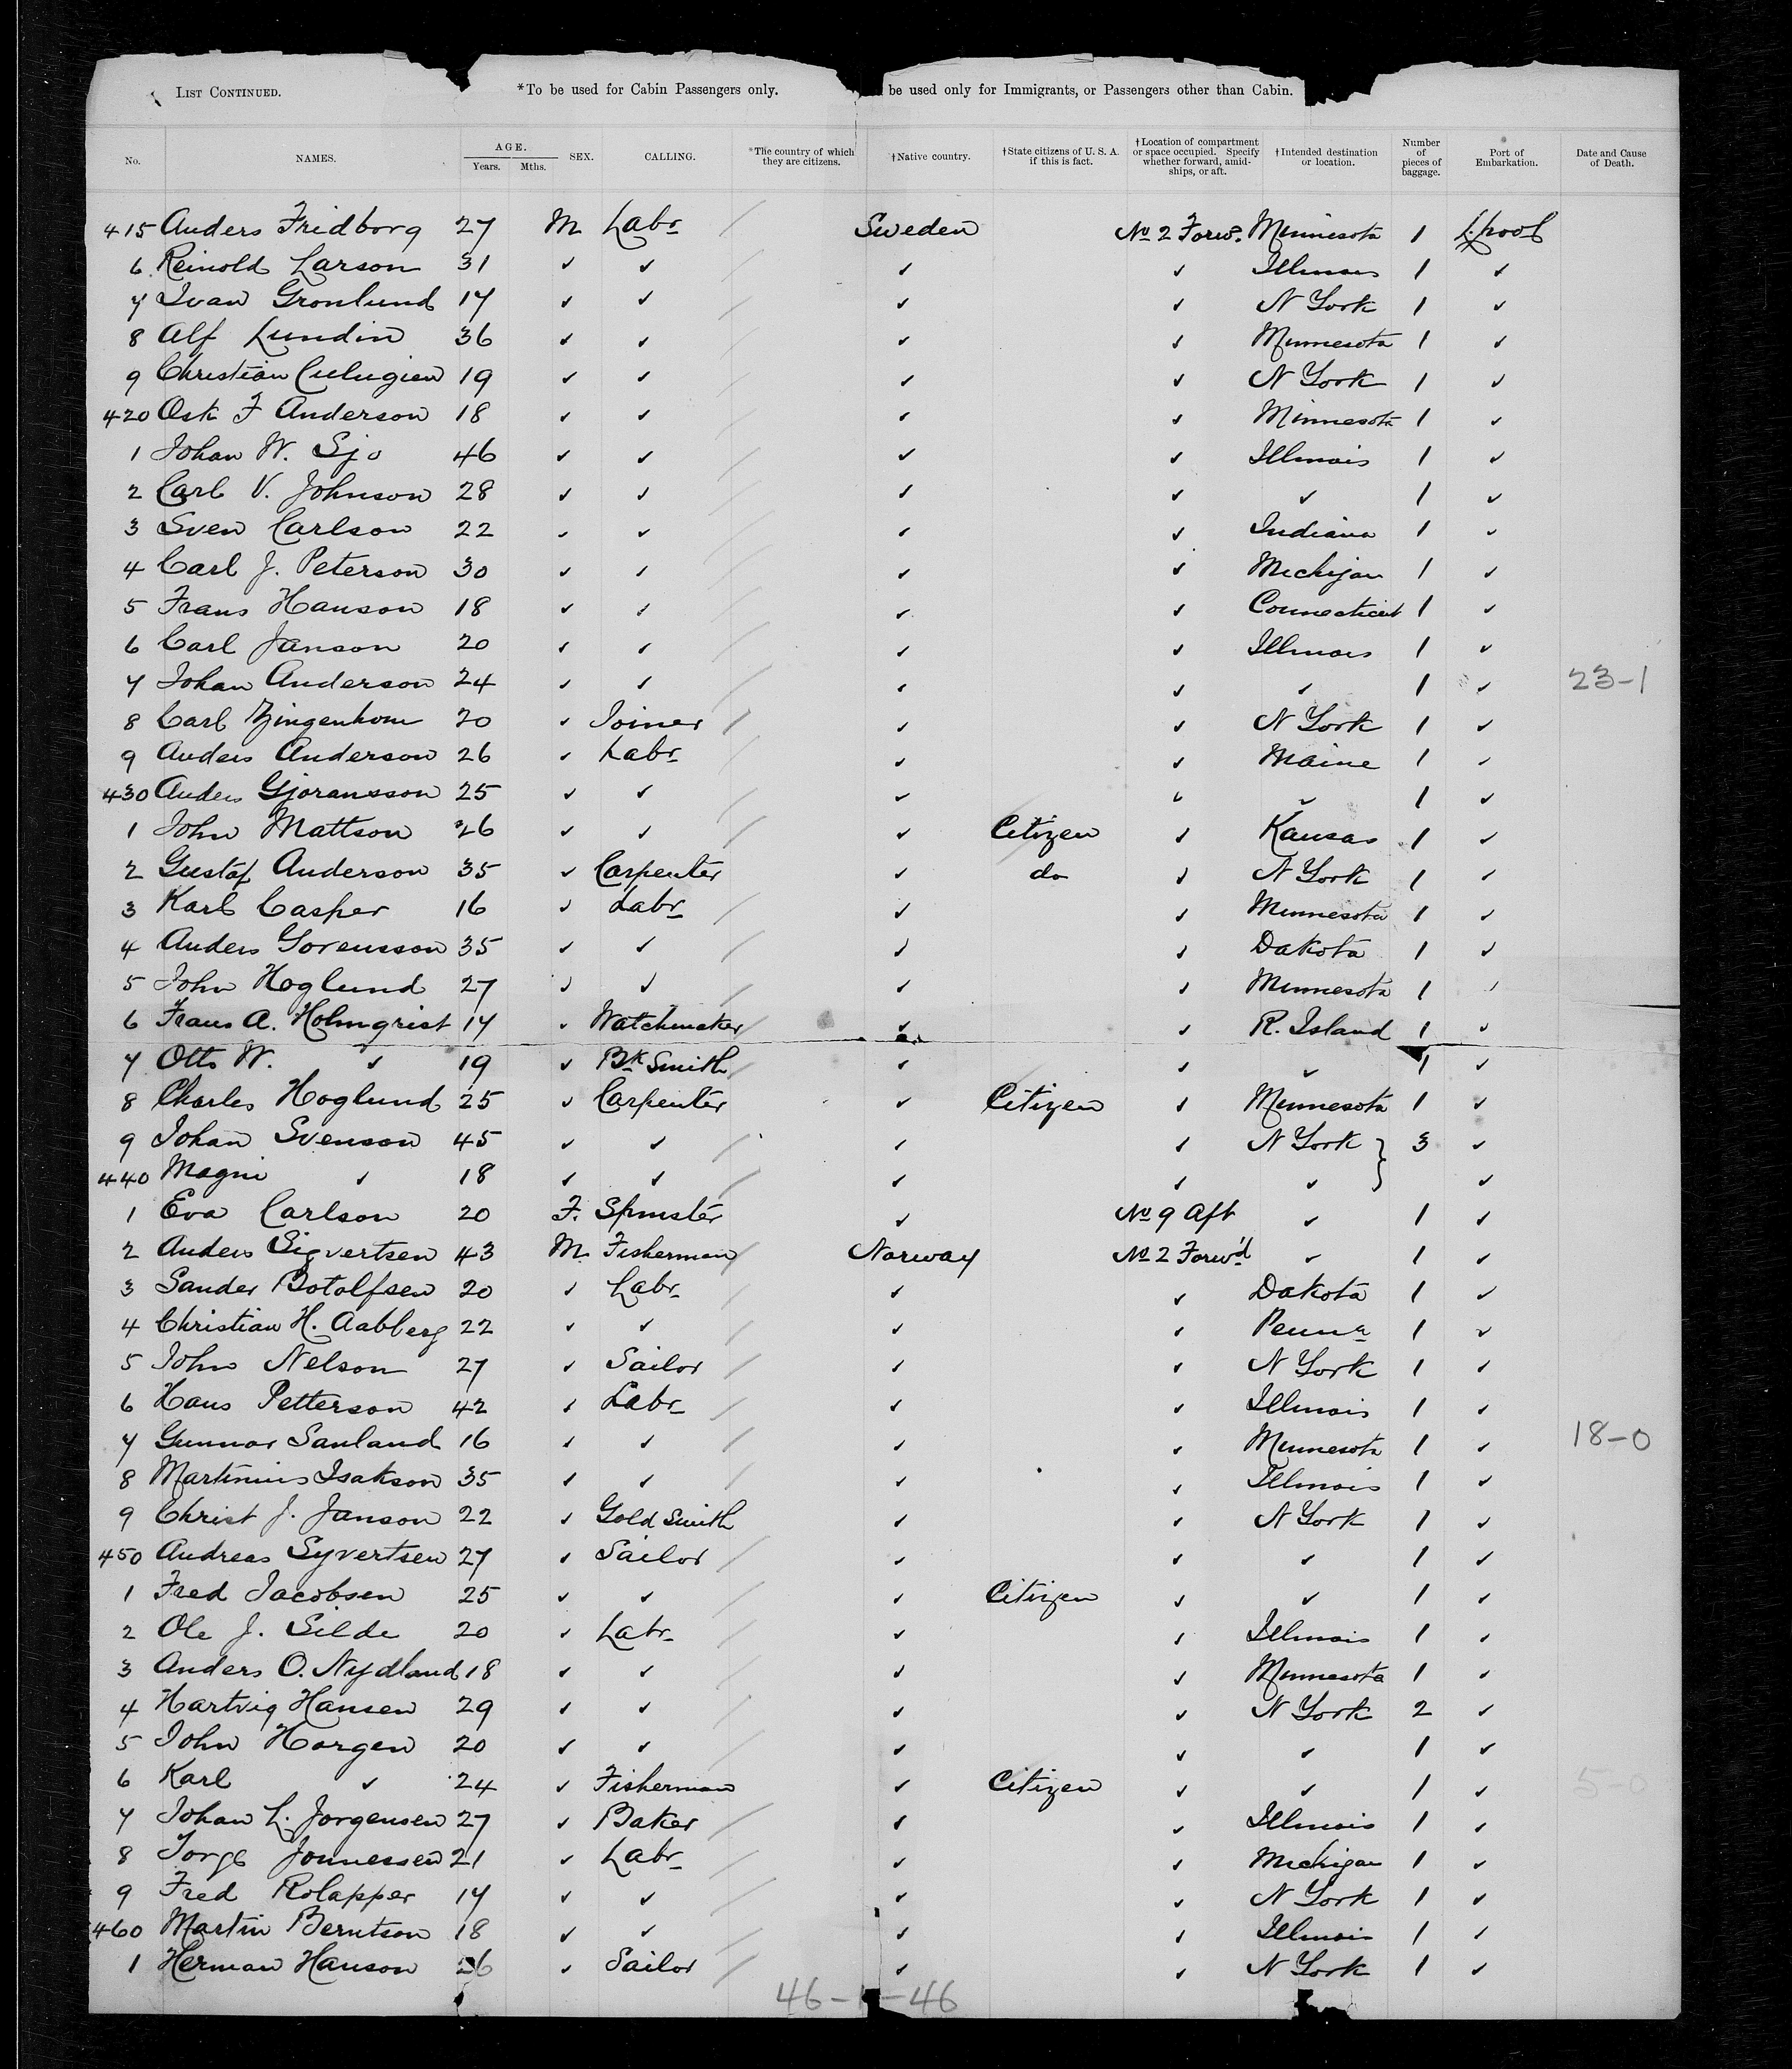 LIST CONTINUED. *To be used for Cabin Passengers only. be used only for Immigrants, or Passengers other than Cabin.
No. NAMES. AGE. Years. Mths. SEX. CALLING. *The country of which they are citizens. †Native country. †State citizens of U. S. A. if this is fact. †Location of compartment or space occupied. Specify whether forward, amidships, or aft. †Intended destination or location. Number of pieces of baggage. Port of Embarkation. Date and Cause of Death.
415 Anders Fridborg 27 M Labr Sweden No 2 Forwd. Minnesota 1 L'pool
6 Reinold Larson 31 ✓ ✓ ✓ ✓ Illinois 1 ✓
7 Ivan Gronlund 17 ✓ ✓ ✓ ✓ N York 1 ✓
8 Alf Lundin 36 ✓ ✓ ✓ ✓ Minnesota 1 ✓
9 Christian 19 ✓ ✓ ✓ ✓ N York 1 ✓
420 Osk F Anderson 18 ✓ ✓ ✓ ✓ Minnesota 1 ✓
1 Johan W. Sjo 46 ✓ ✓ ✓ ✓ Illinois 1 ✓
2 Carl V. Johnson 28 ✓ ✓ ✓ ✓ ✓ 1 ✓
3 Sven Carlson 22 ✓ ✓ ✓ ✓ Indiana 1 ✓
4 Carl J. Peterson 30 ✓ ✓ ✓ ✓ Michigan 1 ✓
5 Frans Hanson 18 ✓ ✓ ✓ ✓ Connecticut 1 ✓
6 Carl Janson 20 ✓ ✓ ✓ ✓ Illinois 1 ✓
7 Johan Anderson 24 ✓ ✓ ✓ ✓ ✓ 1 ✓ 23-1
8 Carl 20 ✓ Joiner ✓ ✓ N York 1 ✓
9 Anders Anderson 26 ✓ Labr ✓ ✓ Maine 1 ✓
430 Anders Gjoransson 25 ✓ ✓ ✓ ✓ ✓ 1 ✓
1 John Mattson 26 ✓ ✓ ✓ Citizen ✓ Kansas 1 ✓
2 Gustaf Anderson 35 ✓ Carpenter ✓ do ✓ N York 1 ✓
3 Karl Casper 16 ✓ Labr ✓ ✓ Minnesota 1 ✓
4 Anders Gorensson 35 ✓ ✓ ✓ ✓ Dakota 1 ✓
5 John Hoglund 27 ✓ ✓ ✓ ✓ Minnesota 1 ✓
6 Frans A. Holmqrist 17 ✓ Watchmaker ✓ ✓ R. Island 1 ✓
7 Otto W. ✓ 19 ✓ Bk Smith ✓ ✓ ✓ 1 ✓
8 Charles Hoglund 25 ✓ Carpenter ✓ Citizen ✓ Minnesota 1 ✓
9 Johan Svenson 45 ✓ ✓ ✓ ✓ N York } 3 ✓
440 Magni ✓ 18 ✓ ✓ ✓ ✓ ✓ ✓
1 Eva Carlson 20 F. Spinster ✓ No 9 Aft ✓ 1 ✓
2 Anders Sigvertsen 43 M. Fisherman Norway No 2 Forw'd ✓ 1 ✓
3 Sander Botolfsen 20 ✓ Labr ✓ ✓ Dakota 1 ✓
4 Christian H. Aabberg 22 ✓ ✓ ✓ ✓ Penna 1 ✓
5 John Nelson 27 ✓ Sailor ✓ ✓ N York 1 ✓
6 Hans Petterson 42 ✓ Labr ✓ ✓ Illinois 1 ✓
7 Gunnar Sanland 16 ✓ ✓ ✓ ✓ Minnesota 1 ✓ 18-0
8 Martinius Isakson 35 ✓ ✓ ✓ ✓ Illinois 1 ✓
9 Christ J. Janson 22 ✓ Gold Smith ✓ ✓ N York 1 ✓
450 Andreas Syvertsen 27 ✓ Sailor ✓ ✓ ✓ 1 ✓
1 Fred Jacobsen 25 ✓ ✓ ✓ Citizen ✓ ✓ 1 ✓
2 Ole J. Silde 20 ✓ Labr ✓ ✓ Illinois 1 ✓
3 Anders O. Nydland 18 ✓ ✓ ✓ ✓ Minnesota 1 ✓
4 Hartvig Hansen 29 ✓ ✓ ✓ ✓ N York 2 ✓
5 John Horgen 20 ✓ ✓ ✓ ✓ ✓ 1 ✓
6 Karl ✓ 24 ✓ Fisherman ✓ Citizen ✓ ✓ 1 ✓ 5-0
7 Johan L. Jorgensen 27 ✓ Baker ✓ ✓ Illinois 1 ✓
8 Jonnessen 21 ✓ Labr ✓ ✓ Michigan 1 ✓
9 Fred Rolapper 17 ✓ ✓ ✓ ✓ N York 1 ✓
460 Martin Berntson 18 ✓ ✓ ✓ ✓ Illinois 1 ✓
1 Herman Hanson 26 ✓ Sailor ✓ ✓ N York 1 ✓
46- -46